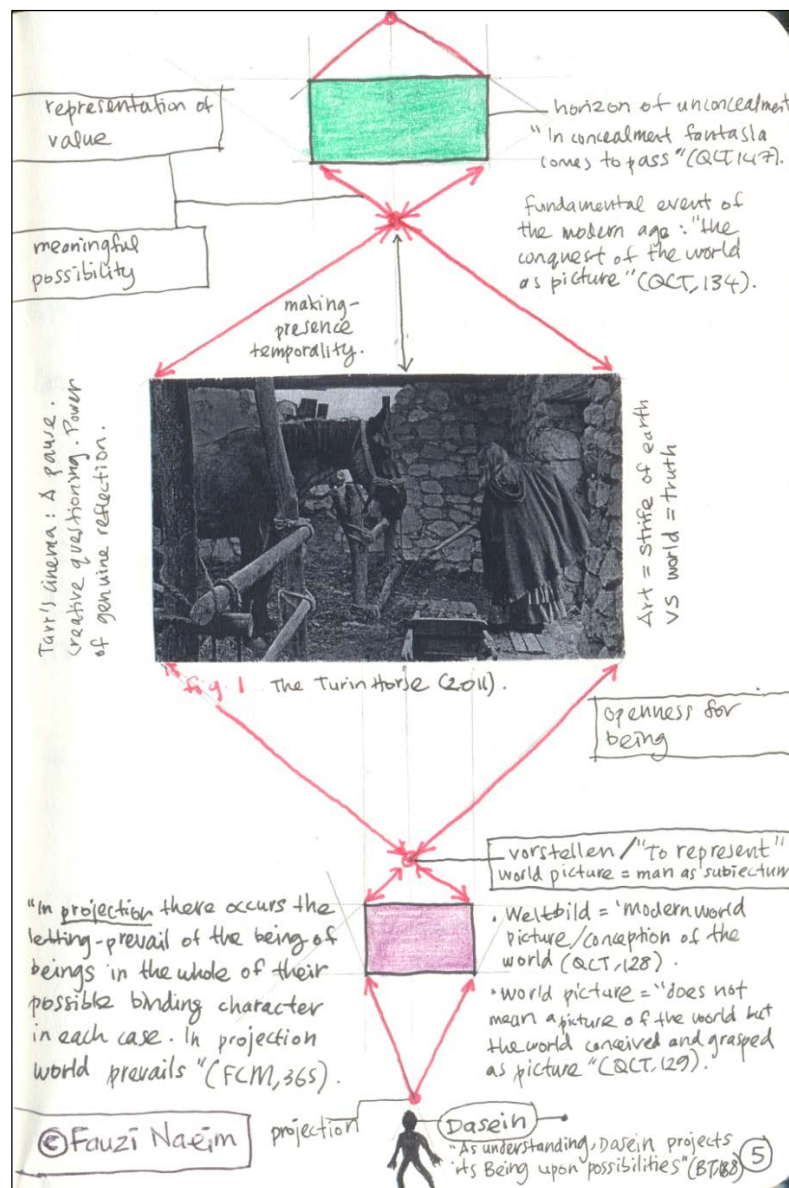 representation of
value
meaningful
possibility
horizon of unconcealment
"In concealment fantasia
comes to pass" (QCT, 147).
fundamental event of
the modern age: "the
conquest of the world
as picture" (QCT, 134).
making-
presence
temporality.
Tarr's cinema: A pause.
Creative questioning. Power
of genuine reflection.
Art = strife of earth
VS world = truth
fig. 1 The Turin Horse (2011).
openness for
being
vorstellen / "To represent"
world picture = man as subiectum
"In projection there occurs the
letting-prevail of the being of
beings in the whole of their
possible binding character
in each case. In projection
world prevails" (FCM, 365).
• Weltbild = 'Modern world
picture/conception of the
world (QCT, 128).
• World picture = "does not
mean a picture of the world but
the world conceived and grasped
as picture" (QCT, 129).
©Fauzi Naeim
projection
Dasein
"As understanding, Dasein projects
its Being upon possibilities" (BT, 188)
5